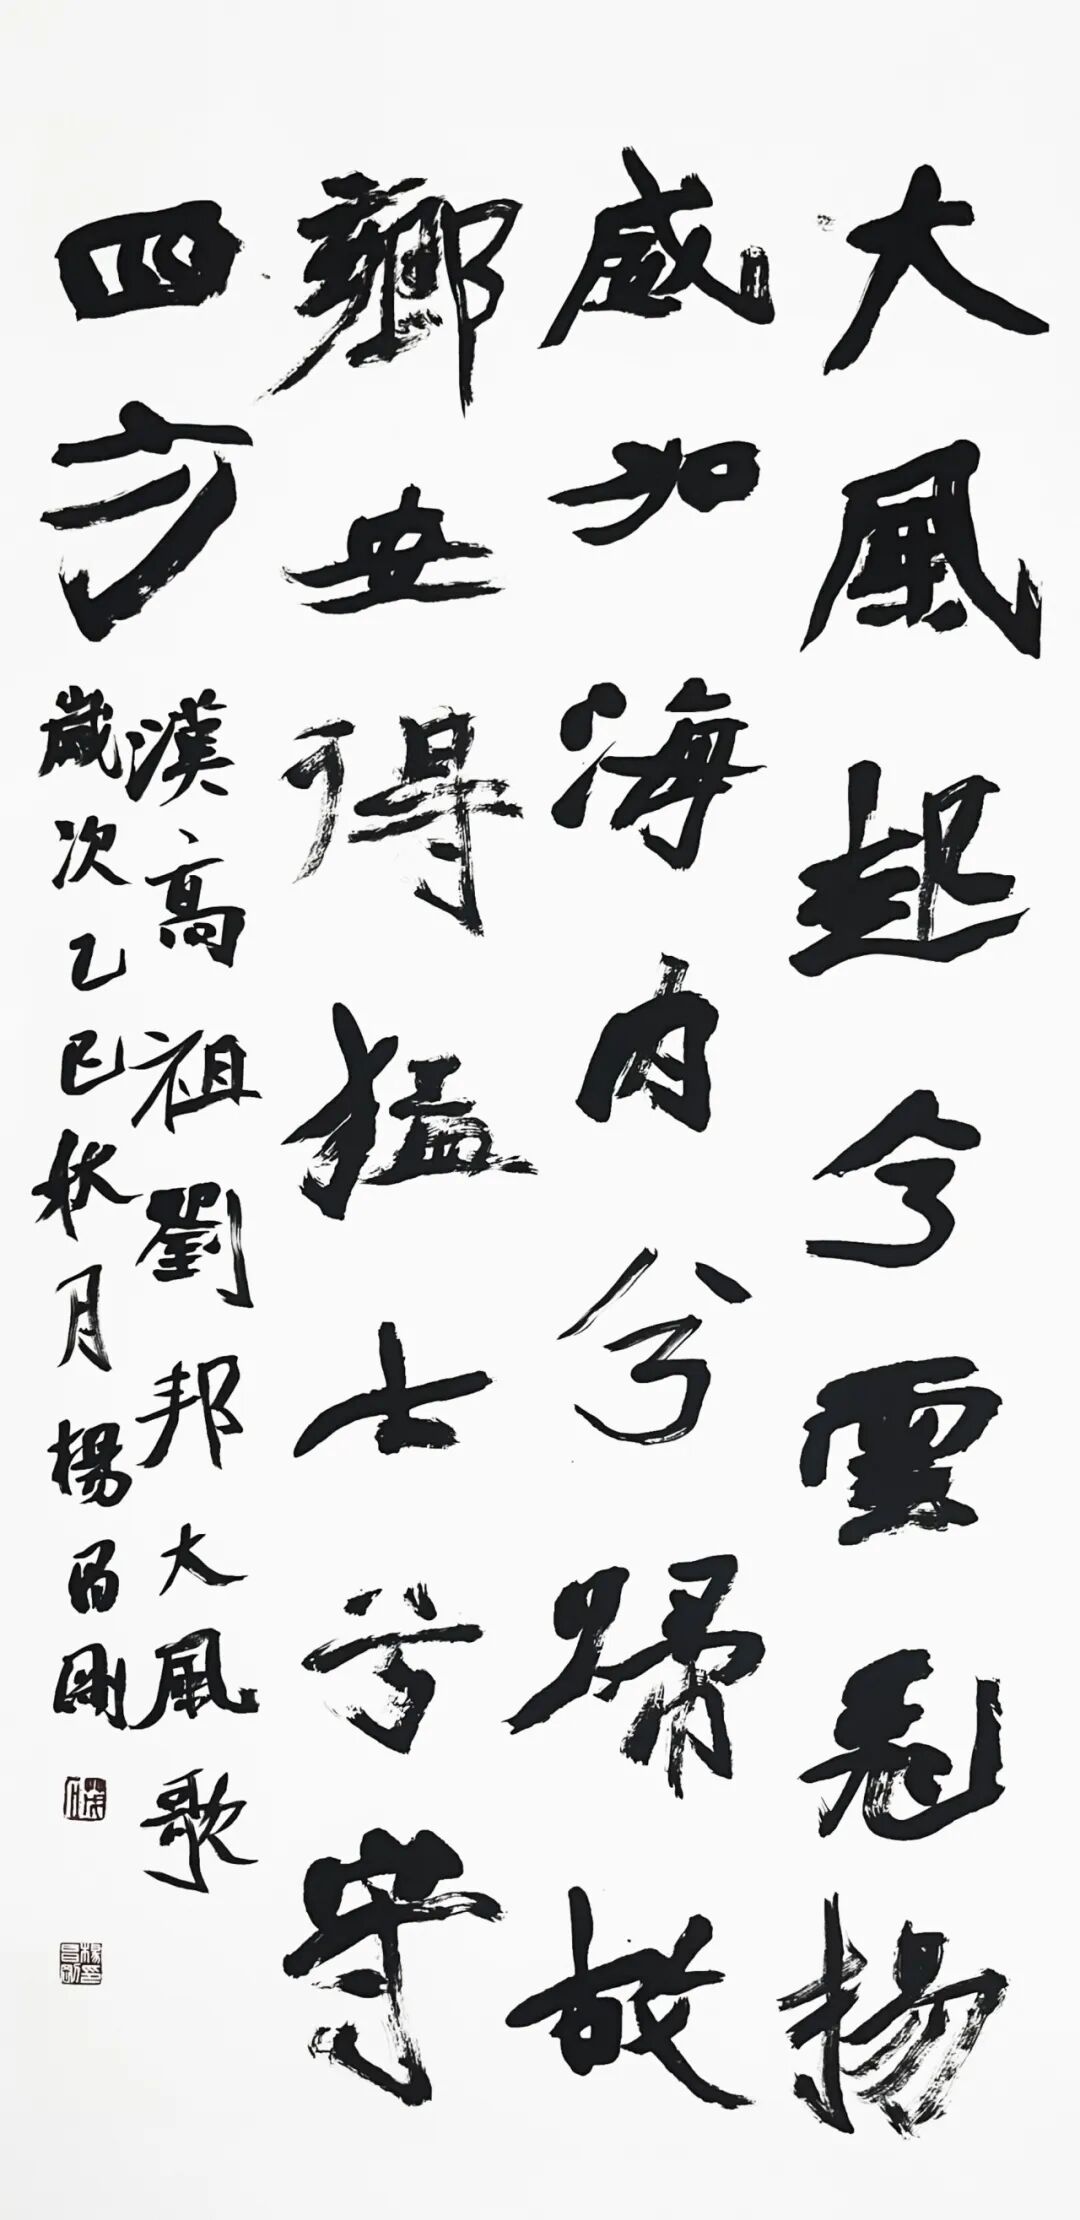 大風起兮雲飛揚
威加海内兮歸故
鄉安得猛士兮守
四方
漢高祖劉邦大風歌
歲次乙巳秋月楊昌剛
楊昌剛印